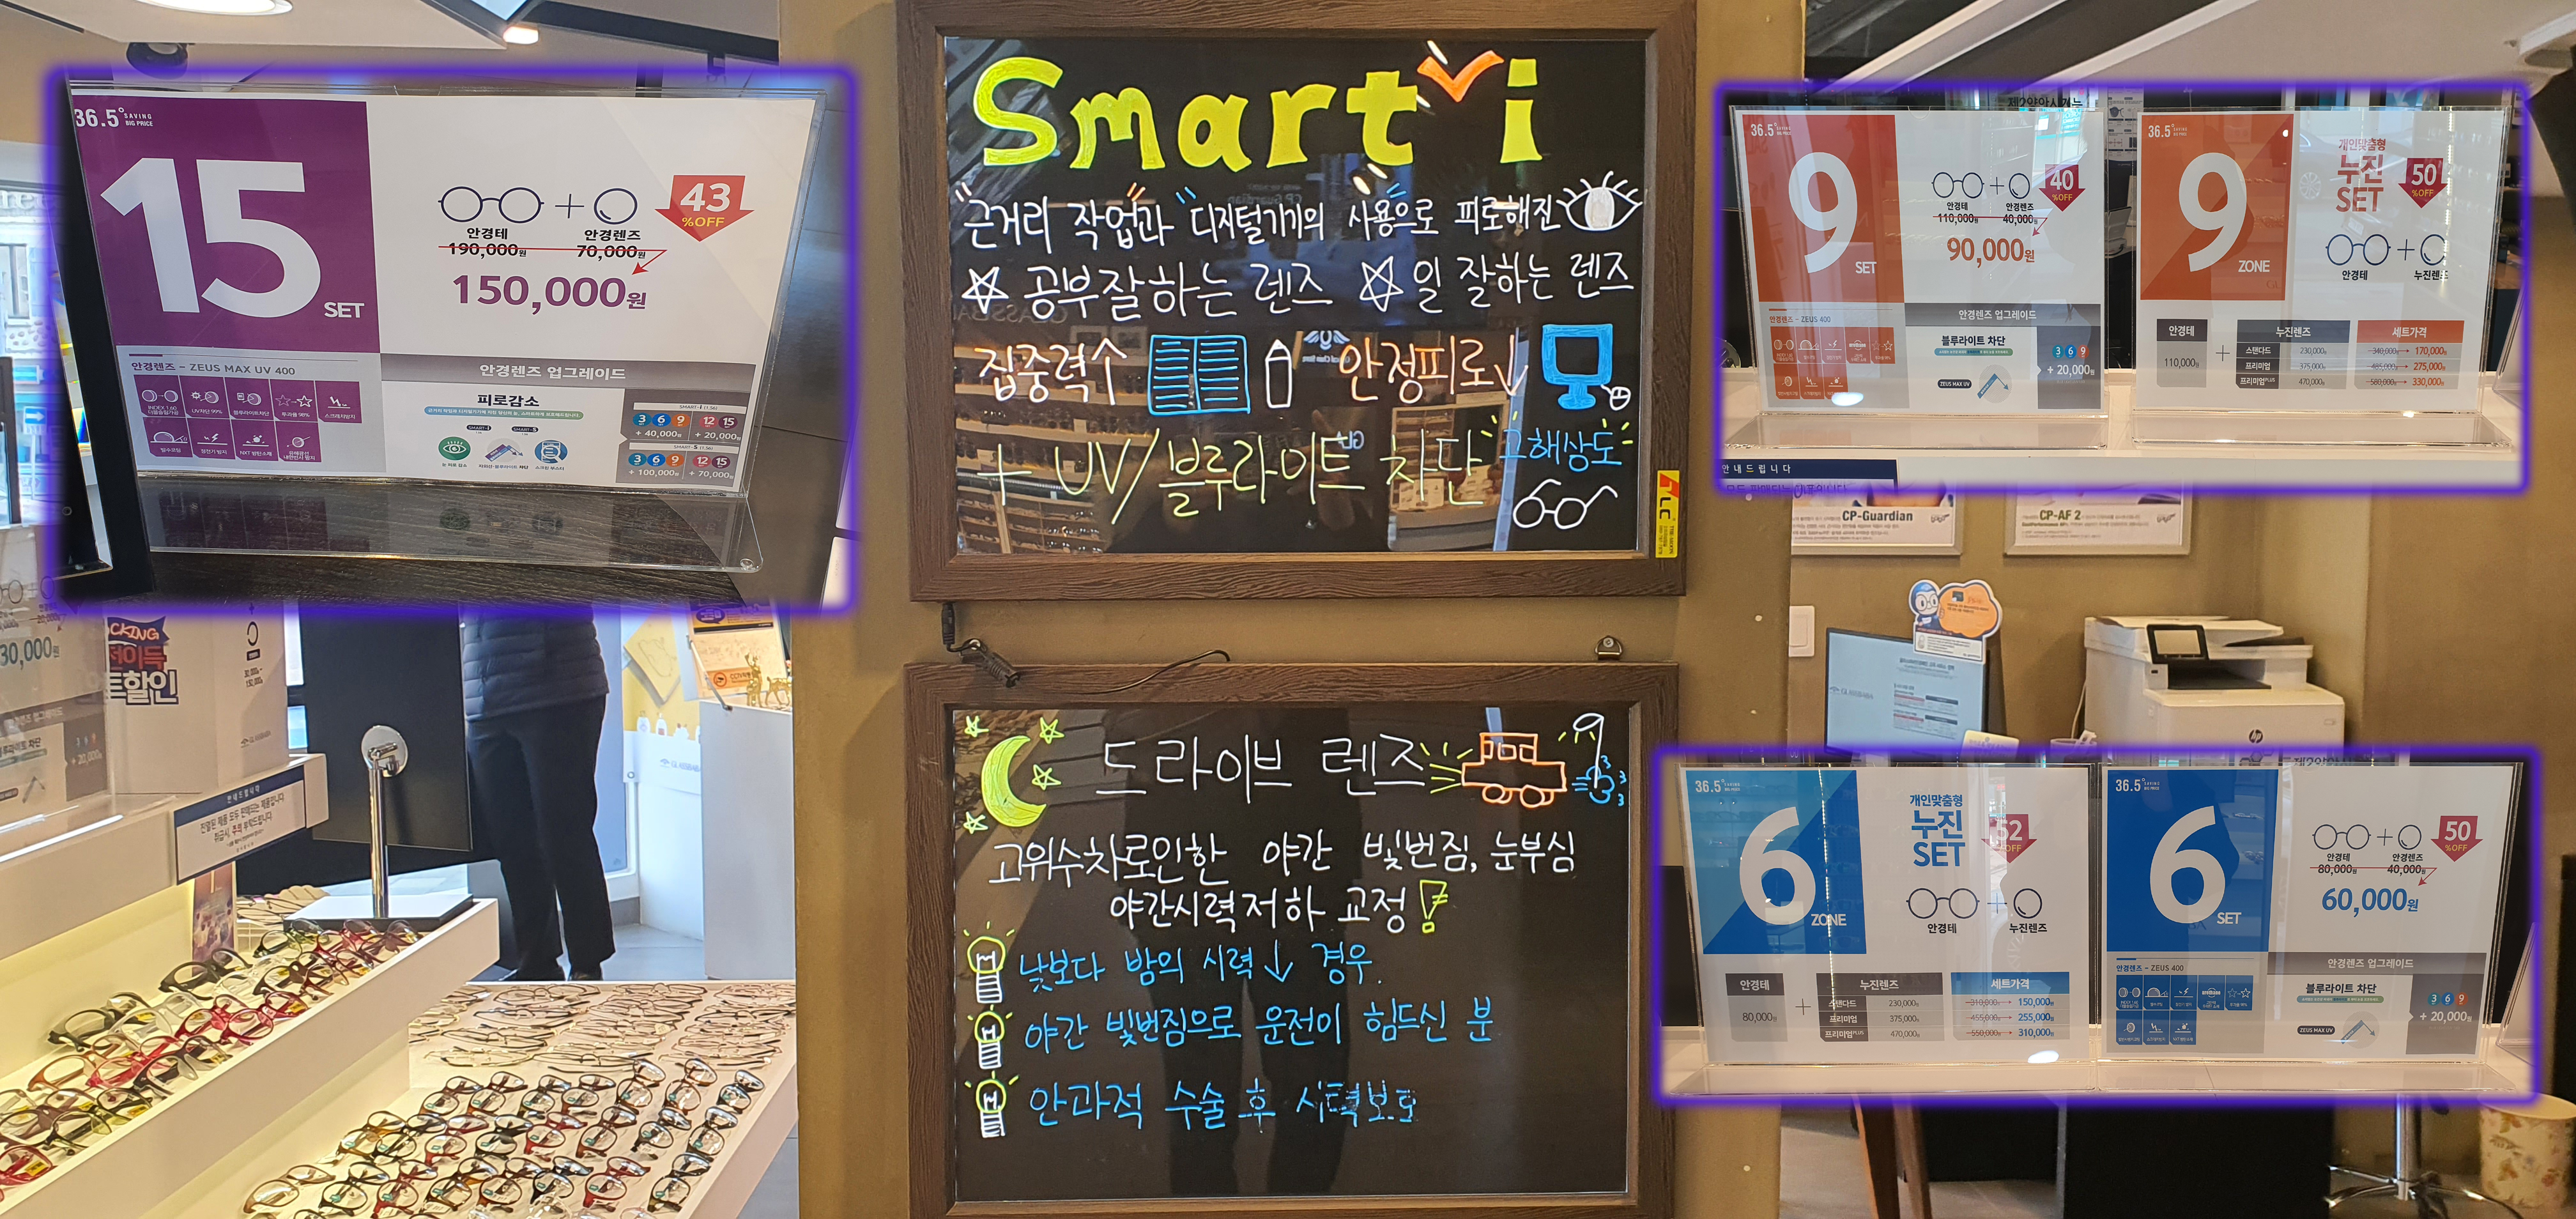 36.5° SAVING BIG PRICE
15 SET
43 %OFF
안경테 안경렌즈
190,000원 70,000원
150,000원
안경렌즈 - ZEUS MAX UV 400
안경렌즈 업그레이드
피로감소
SMART-i (1.56)
3 6 9 12 15
+ 40,000원 + 20,000원
3 6 9 12 15
+ 100,000원 + 70,000원
Smart i
근거리 작업과 디지털기기의 사용으로 피로해진
공부잘하는 렌즈 일 잘하는 렌즈
집중력↑ 안정피로↓
+ UV/블루라이트 차단 고해상도
드라이브 렌즈
고위수차로인한 야간 빛번짐, 눈부심
야간시력저하 교정!
낮보다 밤의 시력↓ 경우.
야간 빛번짐으로 운전이 힘드신 분
안과적 수술 후
36.5°
9 SET
40 %OFF
안경테 안경렌즈
110,000원 40,000원
90,000원
안경렌즈 - ZEUS 400
안경렌즈 업그레이드
블루라이트 차단
ZEUS MAX UV
3 6 9
+ 20,000원
36.5°
9 ZONE
개인맞춤형
누진
SET
50 %OFF
안경테 누진렌즈
안경테 누진렌즈 세트가격
110,000원 +
스탠다드 230,000원 340,000원 170,000원
프리미엄 375,000원 485,000원 275,000원
프리미엄PLUS 470,000원 580,000원 330,000원
안내드립니다
CP-Guardian
CP-AF 2
36.5°
6 ZONE
개인맞춤형
누진
SET
52 %OFF
안경테 누진렌즈
안경테 누진렌즈 세트가격
80,000원 +
스탠다드 230,000원 310,000원 150,000원
프리미엄 375,000원 455,000원 255,000원
프리미엄PLUS 470,000원 550,000원 310,000원
36.5°
6 SET
50 %OFF
안경테 안경렌즈
80,000원 40,000원
60,000원
안경렌즈 - ZEUS 400
안경렌즈 업그레이드
블루라이트 차단
ZEUS MAX UV
3 6 9
+ 20,000원